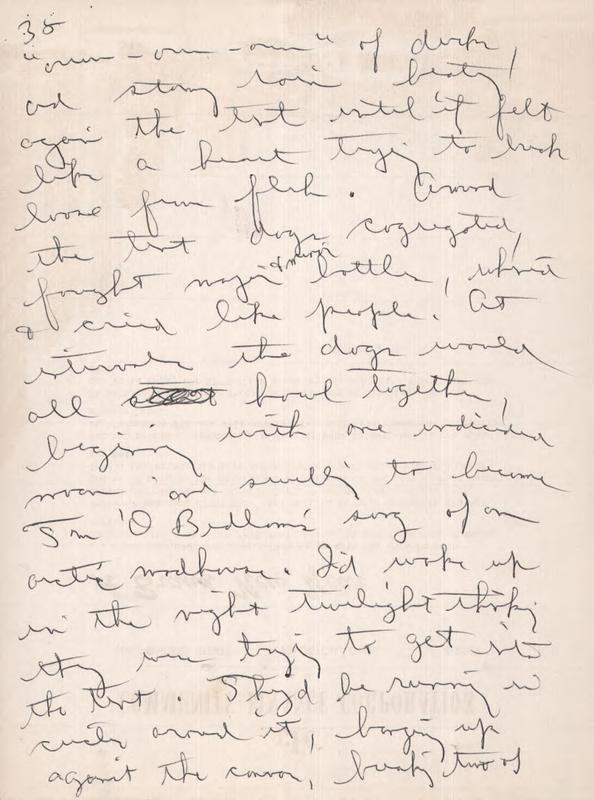 38
"oum-oum-oum" of ducks,
and stormy rain beating
against the tent until it felt
like a heart trying to break
loose from flesh. Around
the tent dogs congregated,
fought major & minor battles, whined
& cried like people. At
intervals the dogs would
all howl together,
beginning with one individual
moan and swelling to become
Tom 'O Bedlam's song of an
arctic madhouse. I'd wake up
in the night twilight thinking
they were trying to get into
the tent. They'd be running in
circles around it, banging up
against the canvas, breaking two of